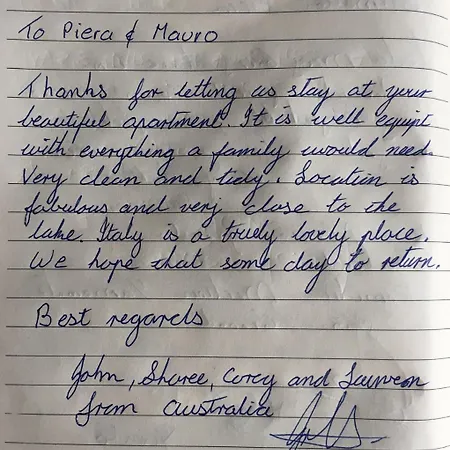 To Piera & Mauro
Thanks for letting us stay at your
beautiful apartment. It is well equipt
with everything a family would need.
Very clean and tidy. Location is
fabulous and very close to the
lake. Italy is a truely lovely place.
We hope that some day to return.
Best regards
John, Sharee, Corey and
from Australia